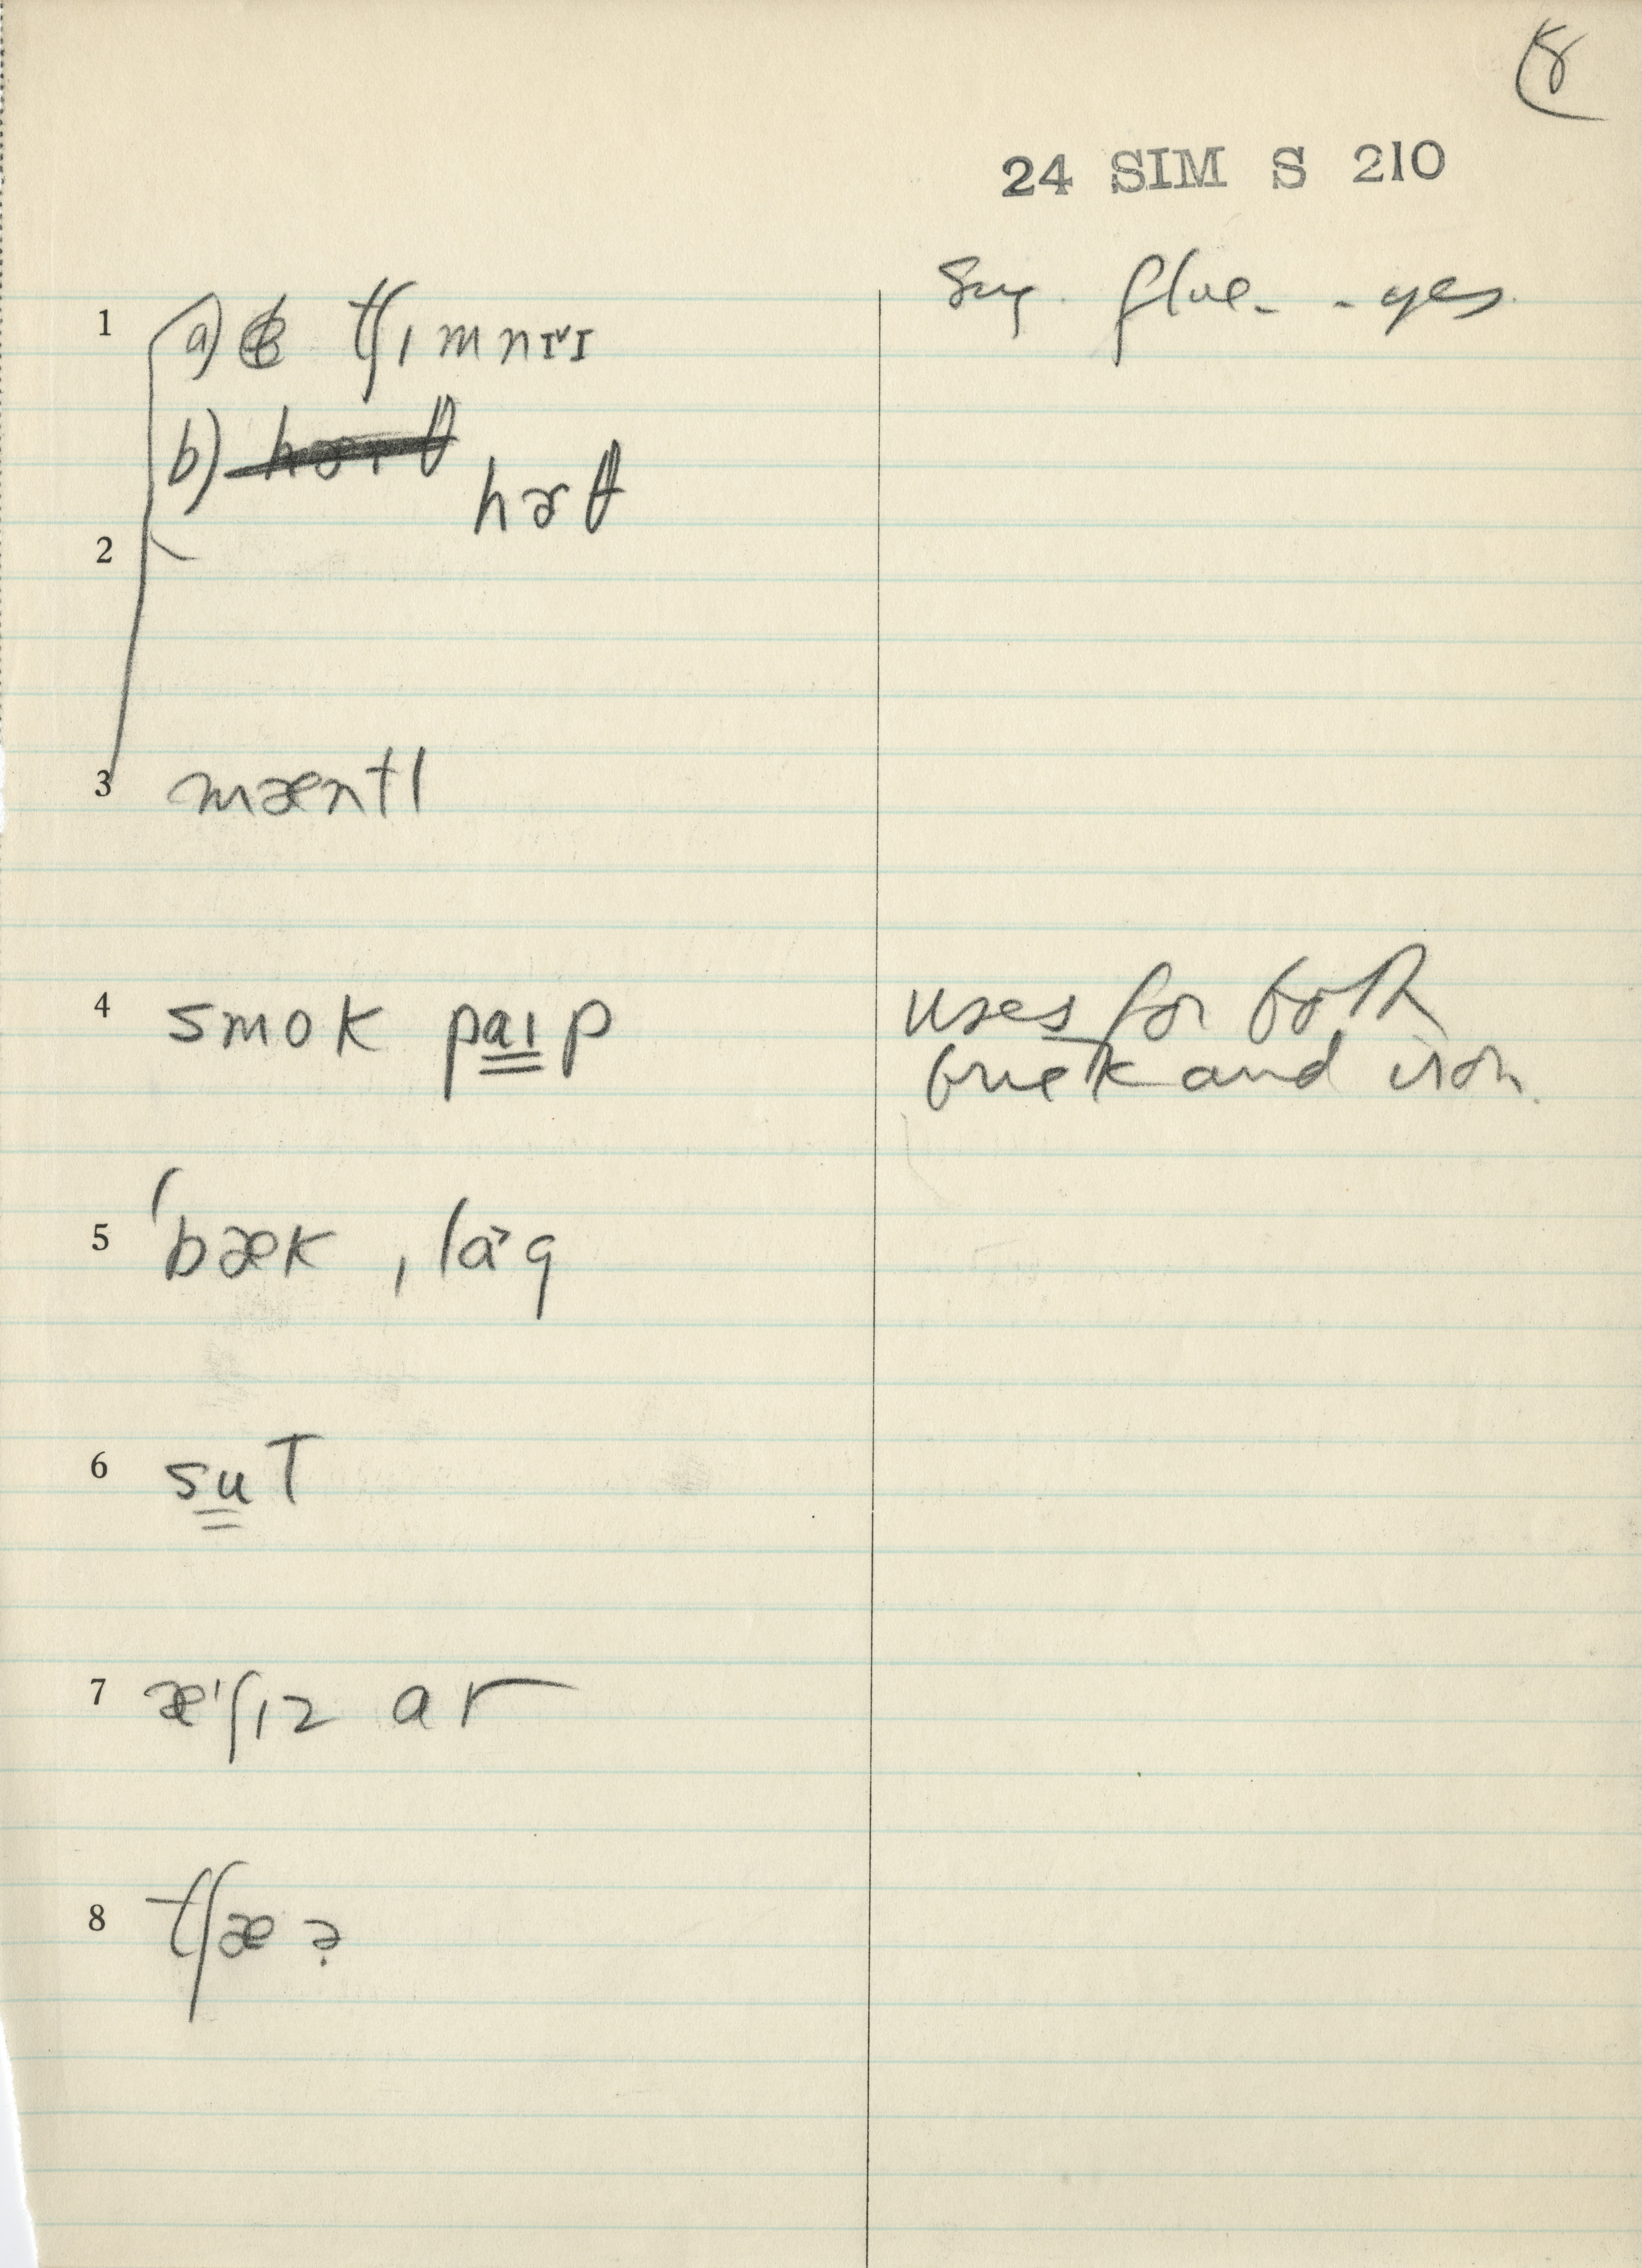 8
24 SIM S 210
Sug. flue - yes
1 a) tʃɪmnɪˇɪ
b) hɚθ
2
3 mæntl
4 smok paɪp
uses for both
brick and iron.
5 ˈbæk ˌlɑ˃g
6 sut
7 æˈʃɪz ar
8 tʃæɚ